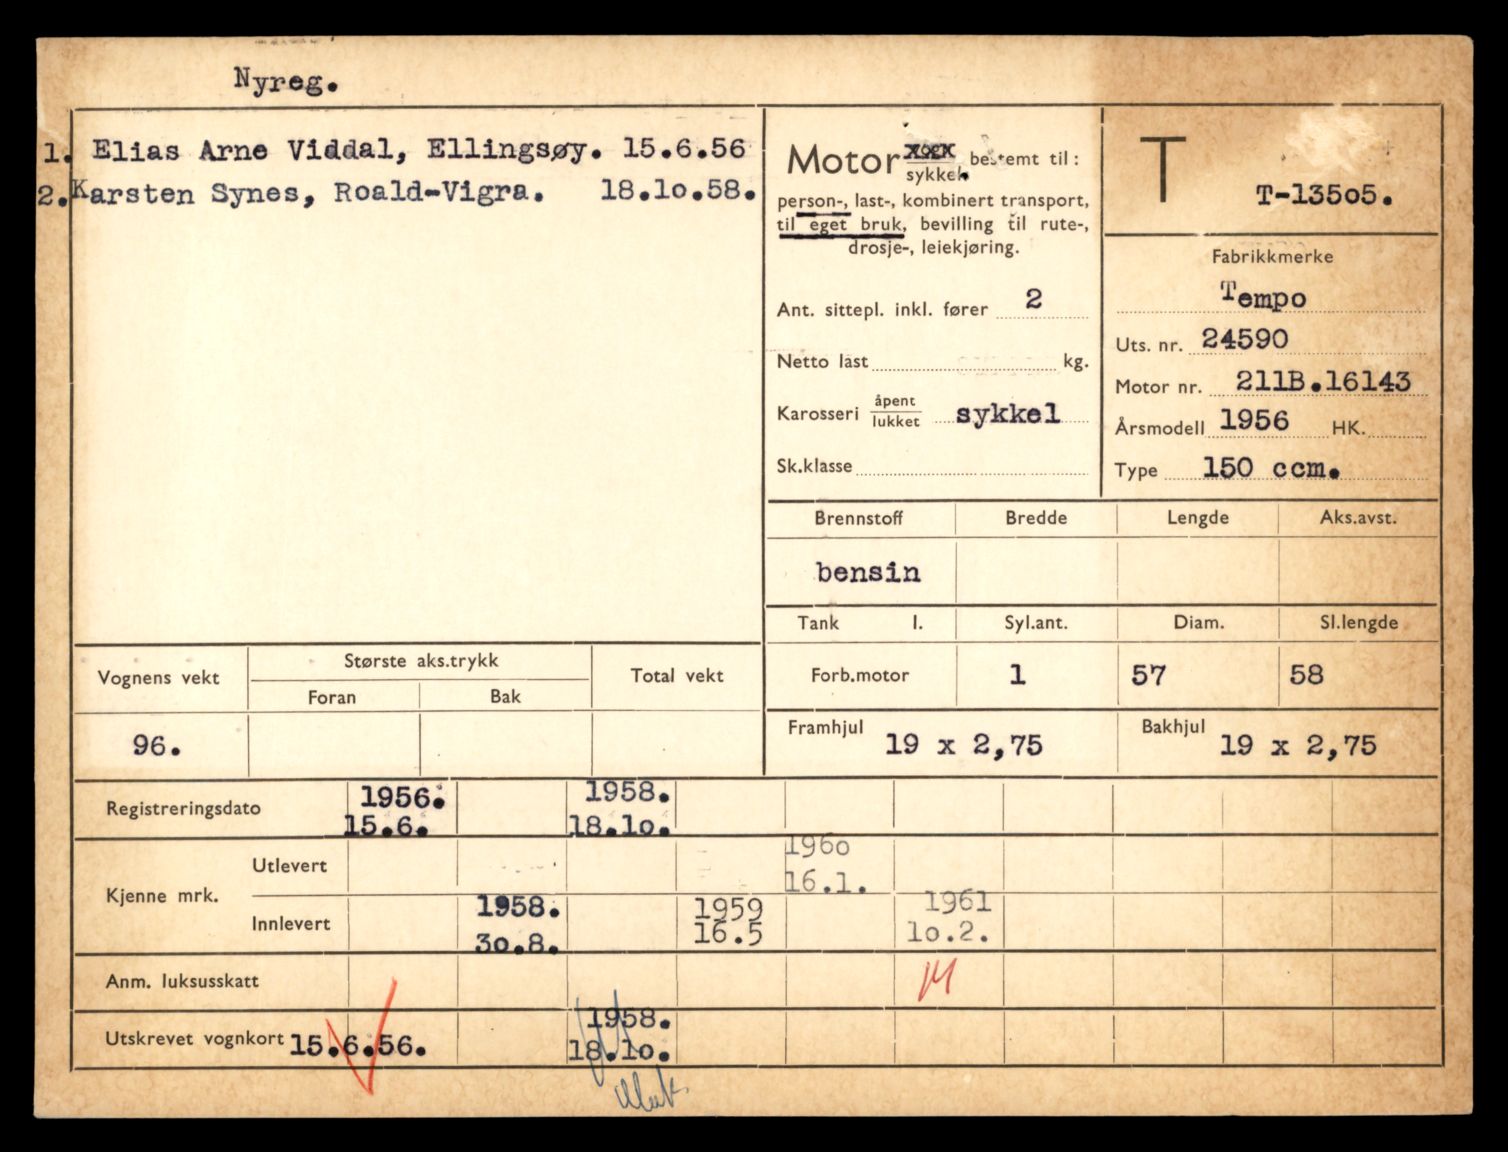 Nyreg.
1. Elias Arne Viddal, Ellingsøy. 15.6.56
2. Karsten Synes, Roald-Vigra. 18.1o.58.
Motor sykkel. bestemt til:
person-, last-, kombinert transport,
til eget bruk, bevilling til rute-,
drosje-, leiekjøring.
Ant. sittepl. inkl. fører 2
Netto last kg.
Karosseri åpent/lukket sykkel
Sk.klasse
T
T-135o5.
Fabrikkmerke
Tempo
Uts. nr. 24590
Motor nr. 211B.16143
Årsmodell 1956 HK.
Type 150 ccm.
Brennstoff Bredde Lengde Aks.avst.
bensin
Tank l. Syl.ant. Diam. Sl.lengde
Forb.motor 1 57 58
Framhjul 19 x 2,75 Bakhjul 19 x 2,75
Vognens vekt Største aks.trykk Total vekt
Foran Bak
96.
Registreringsdato 1956. 1958.
15.6. 18.1o.
Kjenne mrk.
Utlevert 196o
16.1.
Innlevert 1958. 1959 1961
3o.8. 16.5 1o.2.
Anm. luksusskatt
Utskrevet vognkort 15.6.56. 1958.
18.1o.